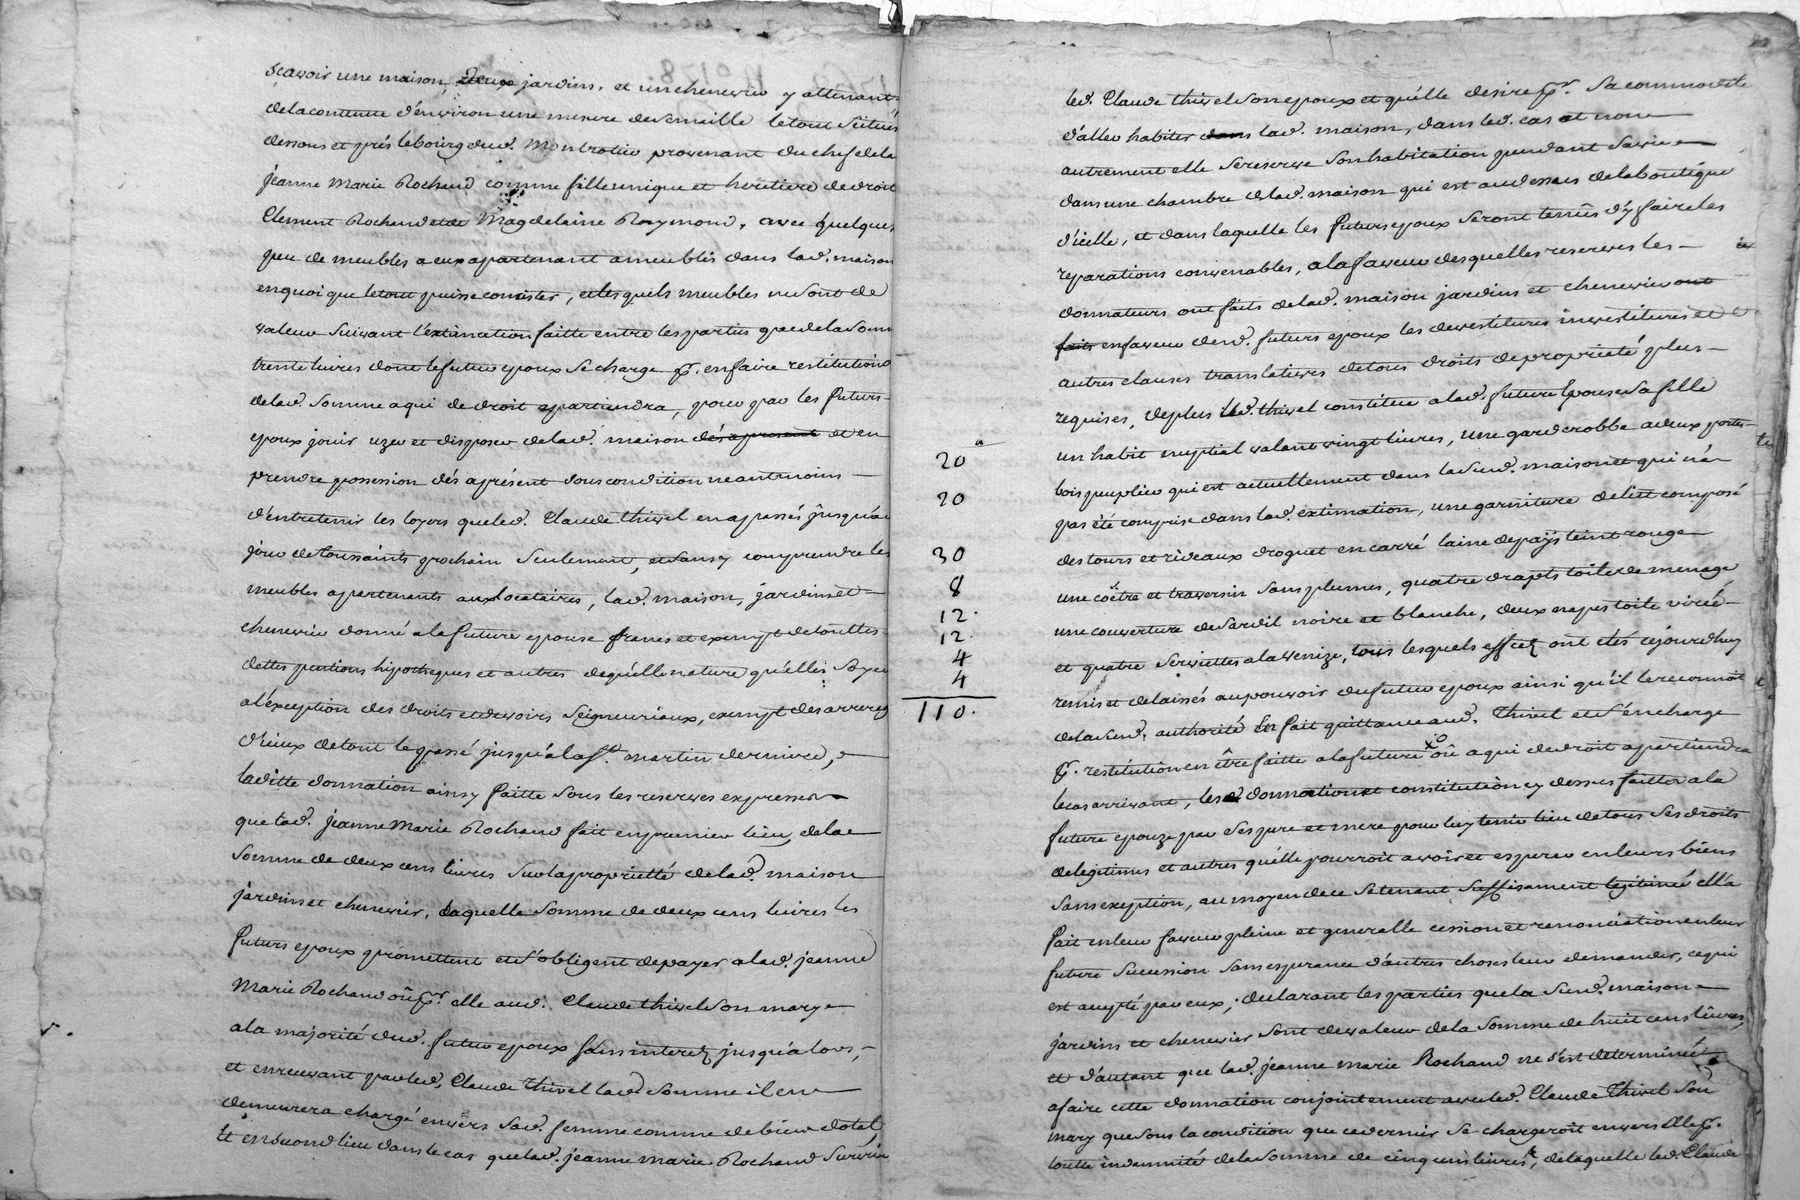 scavoir une maison, deux jardins, et un chenevier y attenant
de la contenue d'environ une mesure de semaille le tout scitués
dessous et prés le bourg dud. Montrotier provenant du chef de la
jeanne Marie Rochand comme fille unique et heritiere de droit
Clement Rochand et de Magdelaine Raymond, avec quelques
peu de meubles a eux apartenant ameublés dans lad. maison
en quoi que le tout puisse consister, et lesquels meubles ne sont de
valeur suivant l'extimation faitte entre les parties que de la som
trente livres dont le futur epoux se charge pr. en faire restitution
de lad. somme a qui de droit apartiendra, pour par les futurs
epoux jouir uzer et disposer de lad. maison dés apresent et en
prendre possession dés aprésent sous condition neantmoins
d'entretenir les loyers que led. Claude thivel en a passés jusqu'au
jour de toussaints prochain seulement, et sans y comprendre les
meubles apartenants aux locataires, lad. maison, jardins et
chenevier donné a la future epouse francs et exempt de touttes
dettes pentions hipotheques et autres de quélle nature qu'elles soyen
a l'éxception des droits et devoirs seigneuriaux, exempt des arrerages
d'iceux de tout le passé jusqu'a la st. martin derniere,
laditte donnation ainsy faitte sous les reserves expresses
que lad. jeanne Marie Rochand fait en premier lieu de la
somme de deux cens livres sur la proprietté de lad. maison
jardins et chenevier, laquelle somme de deux cens livres les
futurs epoux promettent et s'obligent de payer a lad. jeanne
Marie Rochand oû pr. elle aud. Claude thivel son mary
a la majorité dud. futur epoux sans interez jusqu'alors,
et en recevant par led. Claude Thivel lad. somme il en
demeurera chargé envers sad. femme comme de bien dotal,
et en second lieu dans le cas que lad. jeanne marie Rochand survive
led. Claude thivel son epoux et qu'élle desire pr. sa commodité
d'aller habiter dans lad. maison, dans led. cas et non
autrement elle se reserve son habitation pendant sa vie
dans une chambre de lad. maison qui est au dessus de la boutique
d'icelle, et dans laquelle les futurs epoux seront tenûs d'y faire les
reparations convenables, a la faveur desquelles reserves les
donnateurs ont faits de lad. maison jardins et chenevier ont
faits en faveur desd. futurs epoux les devestitures investitures et
autres clauses translatives de tous droits de proprieté plus
requises, de plus led. thivel constitue a lad. future Epouse sa fille
20 un habit nuptial valant vingt livres, une garderobbe a deux portes
20 bois peuplier qui est actuellement dans la susd. maison et qui n'a
pas été comprise dans lad. extimation, une garniture de lit composé
30 des tours et rideaux droguet en carré laine de païs teint rouge
8 une coêtre et traversin sans plumes, quatre drapts toile de menage
12. une couverture de sardil noire et blanche, deux napes toile virée
12. et quatre serviettes a la venize, tous lesquels effetz ont étés cejourdhuy
4
4 remis et delaissés au pouvoir du futur epoux ainsi qu'il le reconnoit
110. de la susd. authorité en fait quittance aud. Thivel et s'en charge
pr. restitution en être faitte a la future oû a qui de droit apartiendra
le cas arrivant, lesd donnation et constitution cy dessus faittes a la
future epouze par ses pere et mere pour luy tenir lieu de tous ses droits
de legitimes et autres qu'elle pourroit avoir et esperer en leurs biens
sans exception, au moyen de ce se tenant suffisament legitimée elle a
fait en leur faveur pleine et generalle cession et renonciation en leur
future sucession sans esperance d'autres choses leur demander, ce qui
est accepté par eux, declarant les parties que la susd. maison
jardins et chenevier sont de valeur de la somme de huit cens livres,
et d'autant que lad. jeanne marie Rochand ne s'est determinée
a faire cette donnation conjointement avec led. Claude Thivel son
mary que sous la condition que ce dernier se chargeroit envers elle pr.
toutte indemnité de la somme de cinq cens livres, de laquelle led. Claude